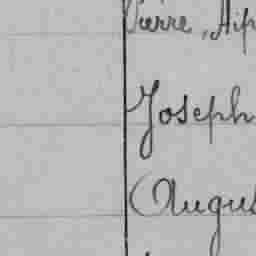 Pierre, Alp
Joseph
Augus